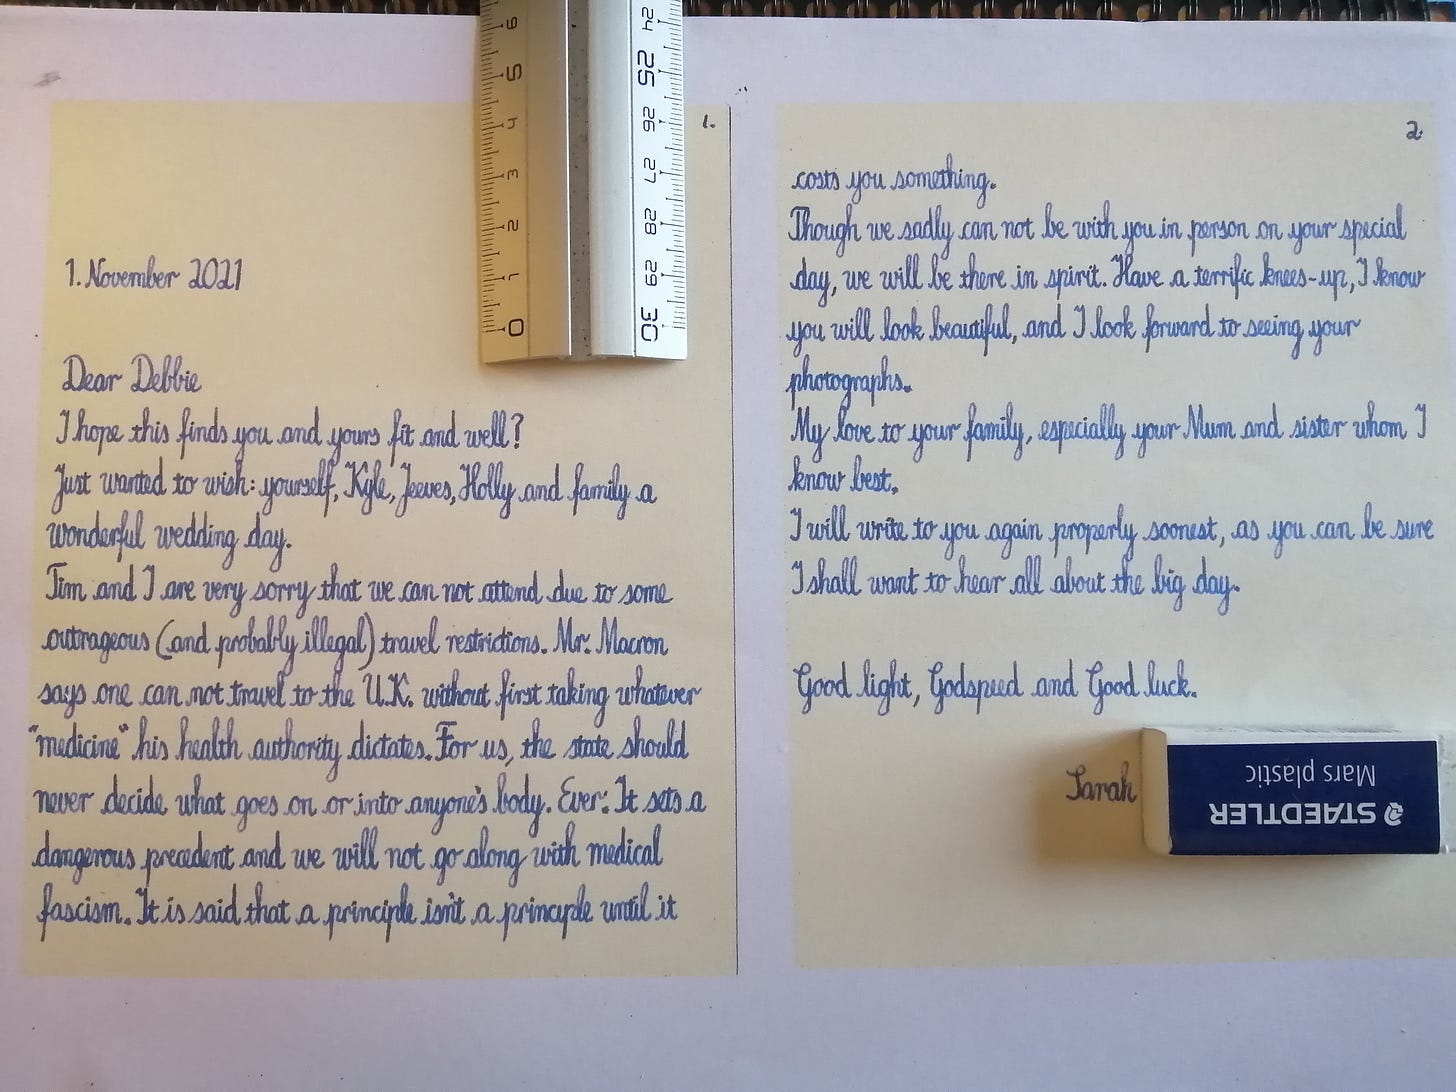 1.
1. November 2021
Dear Debbie
I hope this finds you and yours fit and well?
Just wanted to wish: yourself, Kyle, Jeeves, Holly and family a
wonderful wedding day.
Tim and I are very sorry that we can not attend due to some
outrageous (and probably illegal) travel restrictions. Mr. Macron
says one can not travel to the U.K. without first taking whatever
"medicine" his health authority dictates. For us, the state should
never decide what goes on or into anyone's body. Ever. It sets a
dangerous precedent and we will not go along with medical
fascism. It is said that a principle isn't a principle until it
2.
costs you something.
Though we sadly can not be with you in person on your special
day, we will be there in spirit. Have a terrific knees-up, I know
you will look beautiful, and I look forward to seeing your
photographs.
My love to your family, especially your Mum and sister whom I
know best.
I will write to you again properly soonest, as you can be sure
I shall want to hear all about the big day.
Good light, Godspeed and Good luck.
Sarah
6 5 4 3 2 1 0
24 25 26 27 28 29 30
STAEDTLER
Mars plastic